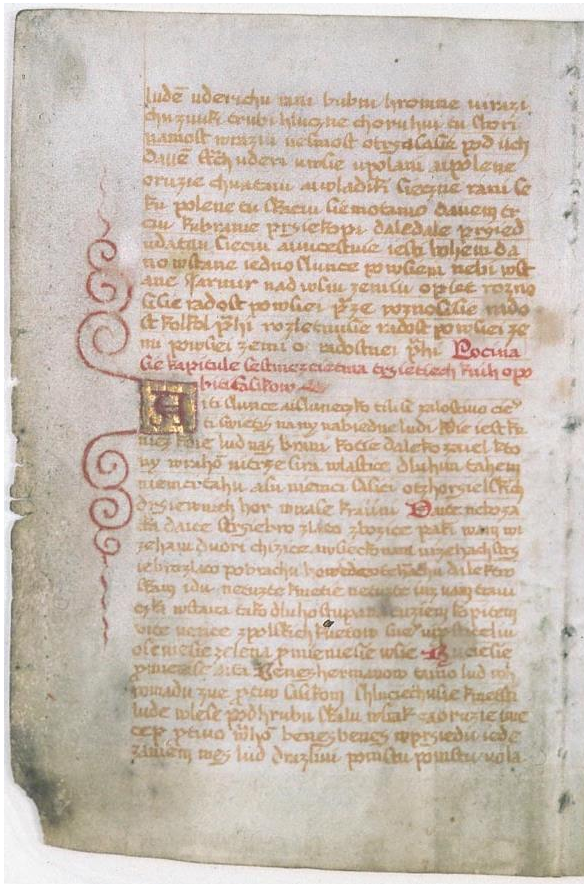 ludē uderichu rani bubni hromne virazi
chu zuuk trubi hlucne choruhui tu stori
namost wraziu uesmost otrzasasie pod iich
dauē
oruzie chuatau auladiki siecne rani se
ku polene tu skaciu siemotamo dauem tr
ciu kubranie prsiekopi daledale prsied
udatnu sieciu auicestuie iest bohem da
no wstane iedno slunce powsiem nebi wst
ane Jarmir nad wsiu zemiu opiet rozno
sisie radost powsiei p̄ze roznosisie rado
st kolkol p̄hi rozletiuisie radost powsiei ze
mi powsiei zemi ot radostnei p̄hi Pocina
sie kapitule sestmezcietma trsietiech knih o po
bitie Sasikow
Ai ti slunce aislunecko tilisi zalostiuo cie
ti swietis na ny nabiedne ludi kdie iest kn
iez kdie lud nas brani kottie daleko zaiel kto
ny wrahō uitrze sira wlastice dluhim tahem
niemci tahu asu niemci Sasici otzhorsielskich
drsieunich hor wnase kraiini Daite neboza
tka daite strsiebro zlato zbozice paki wam wi
zehaiu duori chizice wsiecko nam uizehachu strs
iebro zlato pobrachu howedce otehnachu dale ktro
skam idu netuzte kmetie netuzte iuz uam traui
cka wstaua tako dluho stupana cuziem kopitem
uite uence zpolskich kuietow sie uiprostitelu
osenie sie zelena pmieniesie wsie Rucesie
pmienisie aita Benes hermanow tamo lud w
hromadu zue p̄tiw Sasikom shluciechusie kmetsti
lude wlese podhrubu skalu wsiak zaoruzie uwe
cep p̄tiuo w̄hō benes benes wprsiedu iede
zaniem wes lud druzliui pomstu pomstu uola